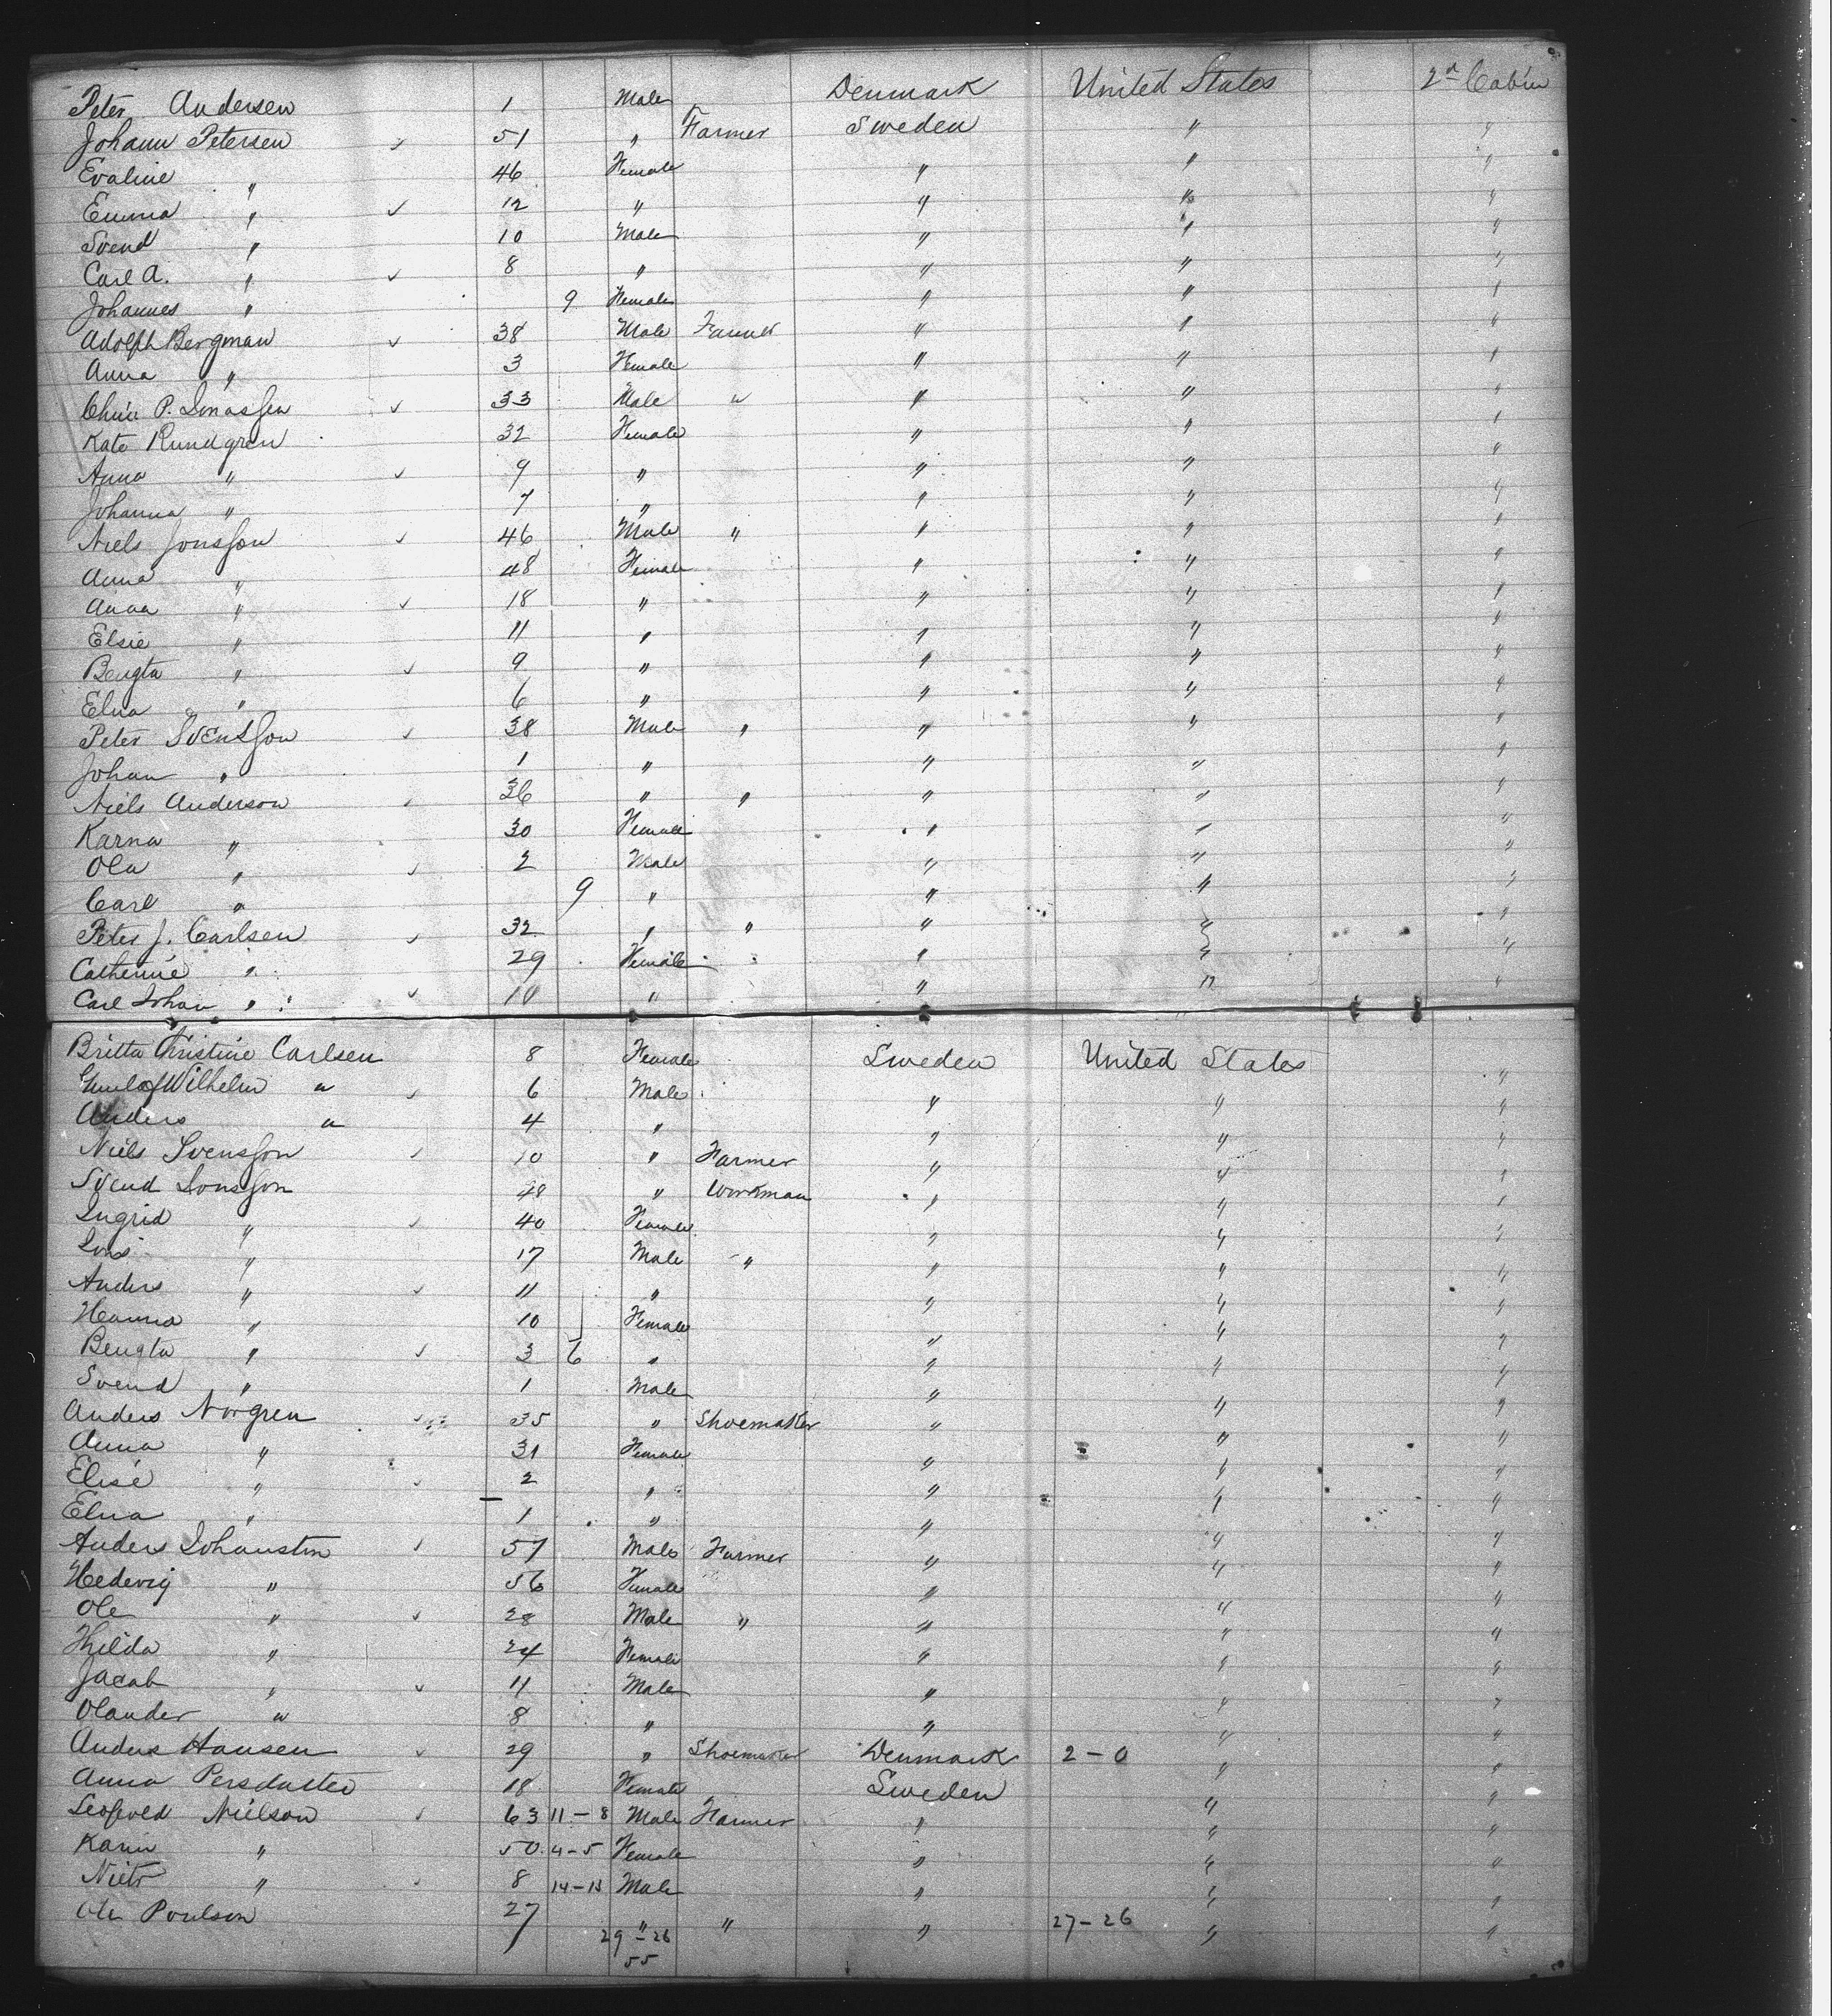 Peter Andersen 1 Male Denmark United States 2d Cabin
Johann Petersen ✓ 51 " Farmer Sweden " "
Evaline " 46 Female " " "
Emma " ✓ 12 " " " "
Svend " 10 Male " " "
Carl A. " ✓ 8 " " " "
Johannes " 9 Female " " "
Adolph Bergman ✓ 38 Male Farmer " " "
Anna " 3 Female " " "
P. Jonassen ✓ 33 Male " " " "
Kate Rundgren 32 Female " " "
Anna " ✓ 9 " " " "
Johanna " 7 " " " "
Niels Jonsson ✓ 46 Male " " " "
Anna " 48 Female " " "
Anna " ✓ 18 " " " "
Elsie " 11 " " " "
Bengta " ✓ 9 " " " "
Elna " 6 " " " "
Peter Svensson ✓ 38 Male " " " "
Johan " 1 " " " "
Niels Anderson ✓ 36 " " " " "
Karna " 30 Female " " "
Ola " ✓ 2 Male " " "
Carl " 9 " " " "
Peter J. Carlsen ✓ 32 " " " " "
Catherine " 29 Female " " "
Carl Johan " ✓ 10 " " " "
Britta Christine Carlsen 8 Female Sweden United States "
Wilhelm " ✓ 6 Male " " "
Anders " 4 " " " "
Niels Svensson ✓ " Farmer " " "
Svend Jonsson 48 " Workman " " "
Ingrid " ✓ 40 Female " " "
Jons " 17 Male " " " "
Anders " ✓ 11 " " " "
Hanna " 10 Female " " "
Bengta " ✓ 3 6 " " " "
Svend " 1 Male " " "
Anders Norgren ✓ 35 " Shoemaker " " "
Anna " 31 Female " " "
Elise " ✓ 2 " " " "
Elna " 1 " " " "
Anders Johanston ✓ 57 Male Farmer " " "
Hedevig " 56 Female " " "
Ole " ✓ 28 Male " " " "
Hilda " 24 Female " " "
Jacob " ✓ 11 Male " " "
Olander " 8 " " " "
Anders Hansen ✓ 29 " Shoemaker Denmark 2-0 " "
Anna Persdatter 18 Female Sweden " "
Leopold Nielson ✓ 63 11-8 Male Farmer " " "
Karin " 50 4-5 Female " " "
Niels " ✓ 8 14-13 Male " " "
Ole Poulson 27 " " " 27-26 " "
29-26
55